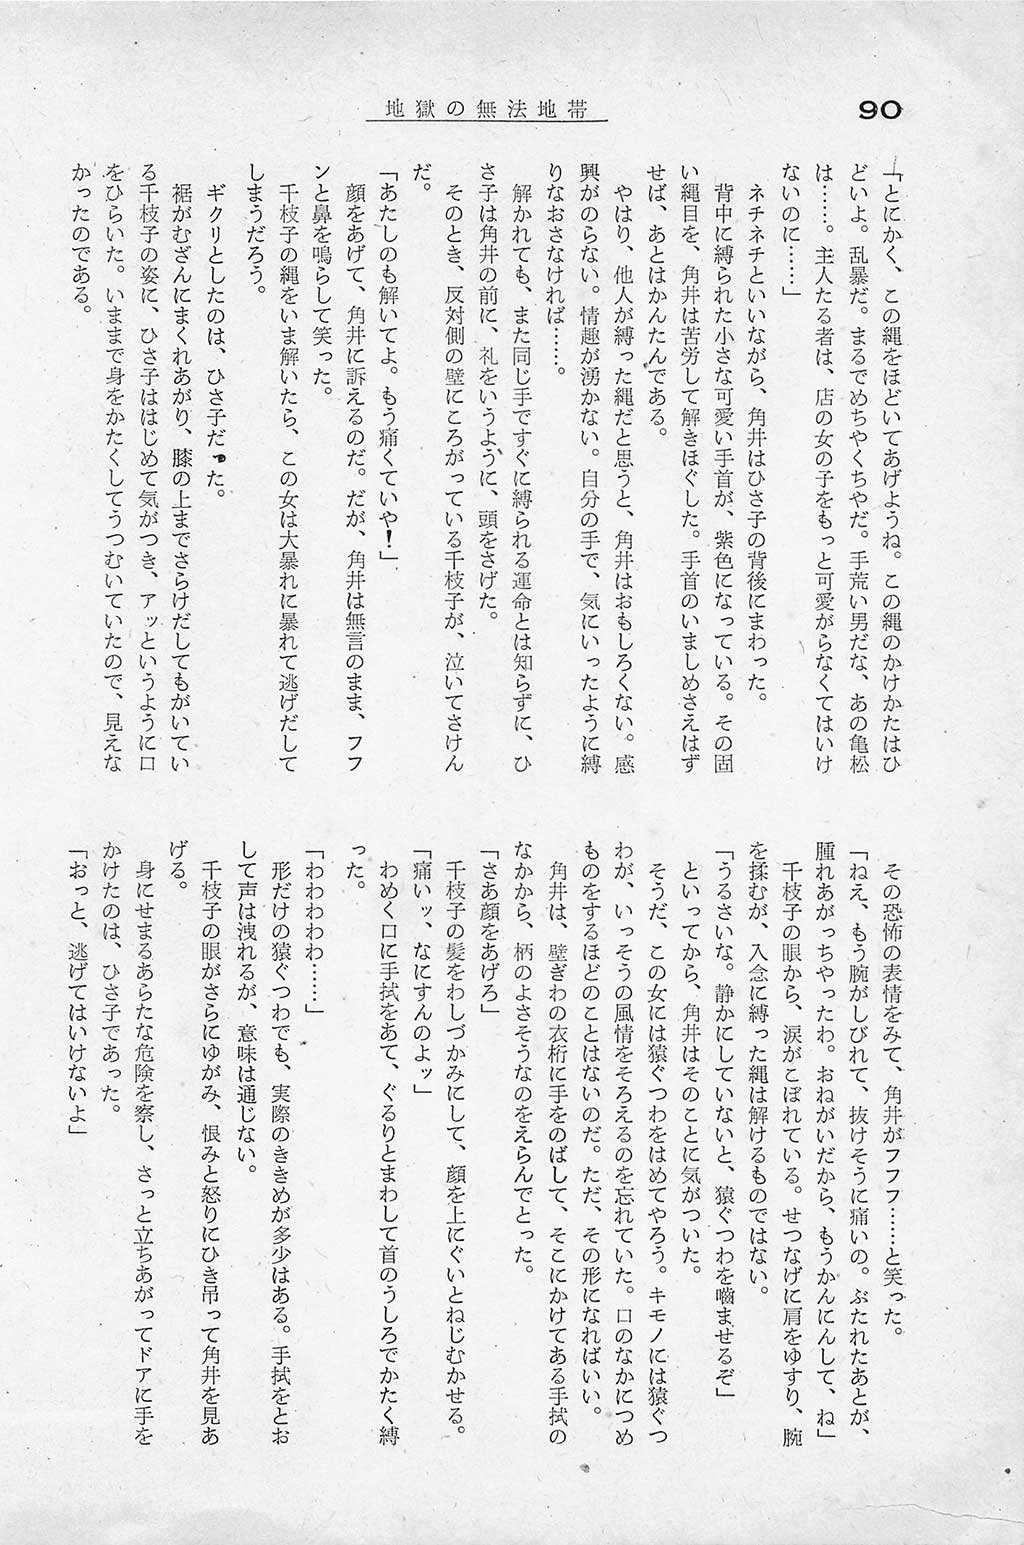 90
地獄の無法地帯
「とにかく、この縄をほどいてあげようね。この縄のかけかたはひ
どいよ。乱暴だ。まるでめちやくちやだ。手荒い男だな、あの亀松
は……。主人たる者は、店の女の子をもっと可愛がらなくてはいけ
ないのに……」
ネチネチといいながら、角井はひさ子の背後にまわった。
背中に縛られた小さな可愛い手首が、紫色になっている。その固
い縄目を、角井は苦労して解きほぐした。手首のいましめさえはず
せば、あとはかんたんである。
やはり、他人が縛った縄だと思うと、角井はおもしろくない。感
興がのらない。情趣が湧かない。自分の手で、気にいったように縛
りなおさなければ……。
解かれても、また同じ手ですぐに縛られる運命とは知らずに、ひ
さ子は角井の前に、礼をいうように、頭をさげた。
そのとき、反対側の壁にころがっている千枝子が、泣いてさけん
だ。
「あたしのも解いてよ。もう痛くていや！」
顔をあげて、角井に訴えるのだ。だが、角井は無言のまま、フフ
ンと鼻を鳴らして笑った。
千枝子の縄をいま解いたら、この女は大暴れに暴れて逃げだして
しまうだろう。
ギクリとしたのは、ひさ子だった。
裾がむざんにまくれあがり、膝の上までさらけだしてもがいてい
る千枝子の姿に、ひさ子ははじめて気がつき、アッというように口
をひらいた。いままで身をかたくしてうつむいていたので、見えな
かったのである。
その恐怖の表情をみて、角井がフフフ……と笑った。
「ねえ、もう腕がしびれて、抜けそうに痛いの。ぶたれたあとが、
腫れあがっちやったわ。おねがいだから、もうかんにんして、ね」
千枝子の眼から、涙がこぼれている。せつなげに肩をゆすり、腕
を揉むが、入念に縛った縄は解けるものではない。
「うるさいな。静かにしていないと、猿ぐつわを嚙ませるぞ」
といってから、角井はそのことに気がついた。
そうだ、この女には猿ぐつわをはめてやろう。キモノには猿ぐつ
わが、いっそうの風情をそろえるのを忘れていた。口のなかにつめ
ものをするほどのことはないのだ。ただ、その形になればいい。
角井は、壁ぎわの衣桁に手をのばして、そこにかけてある手拭の
なかから、柄のよさそうなのをえらんでとった。
「さあ顔をあげろ」
千枝子の髪をわしづかみにして、顔を上にぐいとねじむかせる。
「痛いッ、なにすんのよッ」
わめく口に手拭をあて、ぐるりとまわして首のうしろでかたく縛
った。
「わわわわわ……」
形だけの猿ぐつわでも、実際のききめが多少はある。手拭をとお
して声は洩れるが、意味は通じない。
千枝子の眼がさらにゆがみ、恨みと怒りにひき吊って角井を見あ
げる。
身にせまるあらたな危険を察し、さっと立ちあがってドアに手を
かけたのは、ひさ子であった。
「おっと、逃げてはいけないよ」